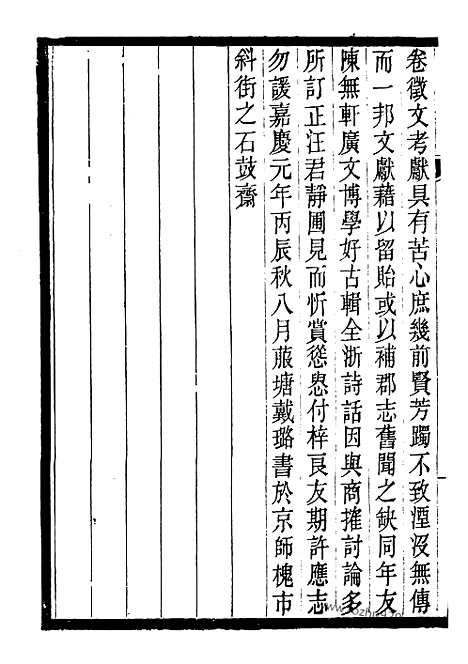 卷徵文考獻具有苦心庶幾前賢芳躅不致湮沒無傳
而一邦文獻藉以留貽或以補郡志舊聞之缺同年友
陳無軒廣文博學好古輯全浙詩話因與商搉討論多
所訂正汪君靜圃見而忻賞慫恿付梓良友期許應志
勿諼嘉慶元年丙辰秋八月菔塘戴璐書於京師槐市
斜街之石鼓齋